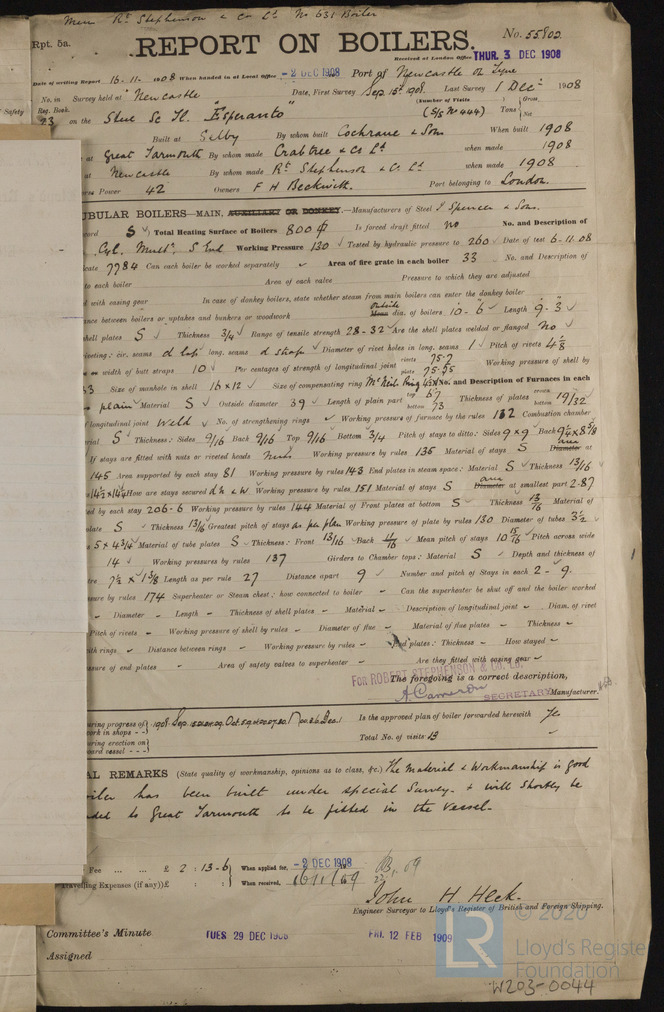 Messrs Rt Stephenson & Co Ld No 631 Boiler
Rpt. 5a.
No. 55802
REPORT ON BOILERS.
Received at London Office THUR. 3 DEC 1908
Date of writing Report 16-11-1908 When handed in at Local Office -2 DEC 1908 Port of Newcastle on Tyne
No. in Survey held at Newcastle Date, First Survey Sep. 15th 1908. Last Survey 1 Dec 1908
Reg. Book. (Number of Visits Gross
23 on the Steel Sc Tl. "Esperanto" (S/S No 444) Tons Net
Safety
Built at Selby By whom built Cochrane & Sons When built 1908
at Great Yarmouth By whom made Crabtree & Co Ld when made 1908
at Newcastle By whom made Rt Stephenson & Co. Ld when made 1908
Power 42 Owners F H Beckwith. Port belonging to London.
BULAR BOILERS—MAIN, AUXILIARY OR DONKEY.—Manufacturers of Steel J Spencer & Sons.
S Total Heating Surface of Boilers 800 Is forced draft fitted no No. and Description of
Cyl. Mult. S End Working Pressure 130 Tested by hydraulic pressure to 260 Date of test 6-11-08
cate 7784 Can each boiler be worked separately Area of fire grate in each boiler 33 No. and Description of
to each boiler Area of each valve Pressure to which they are adjusted
d with easing gear In case of donkey boilers, state whether steam from main boilers can enter the donkey boiler
ance between boilers or uptakes and bunkers or woodwork Mean outside dia. of boilers 10-6 Length 9-3
shell plates S Thickness 3/4 Range of tensile strength 28-32 Are the shell plates welded or flanged no
riveting: cir. seams d lap long. seams d strap Diameter of rivet holes in long. seams 1 Pitch of rivets 4 1/8
width of butt straps 10 Per centages of strength of longitudinal joint rivets 75.7 plate 75.75 Working pressure of shell by
Size of manhole in shell 16 x 12 Size of compensating ring McNeil Ring No. and Description of Furnaces in each
plain Material S Outside diameter 39 Length of plain part top 67 bottom 73 Thickness of plates crown bottom 19/32
longitudinal joint Weld No. of strengthening rings Working pressure of furnace by the rules 132 Combustion chamber
rial S Thickness: Sides 9/16 Back 9/16 Top 9/16 Bottom 3/4 Pitch of stays to ditto: Sides 9 x 9 Back 9 1/4 x 8 5/8
If stays are fitted with nuts or riveted heads Nuts Working pressure by rules 135 Material of stays S Diameter area at
145 Area supported by each stay 81 Working pressure by rules 143 End plates in steam space: Material S Thickness 13/16
14 1/2 x 14 1/4 How are stays secured d n & w Working pressure by rules 151 Material of stays S Diameter area at smallest part 2.87
ted by each stay 206.6 Working pressure by rules 144 Material of Front plates at bottom S Thickness 13/16 Material of
plate S Thickness 13/16 Greatest pitch of stays as per plan Working pressure of plate by rules 130 Diameter of tubes 3 1/2
5 x 4 3/4 Material of tube plates S Thickness: Front 13/16 Back 11/16 Mean pitch of stays 10 15/16 Pitch across wide
14 Working pressures by rules 137 Girders to Chamber tops: Material S Depth and thickness of
tre 7 1/2 x 1 3/8 Length as per rule 27 Distance apart 9 Number and pitch of Stays in each 2 - 9.
sure by rules 174 Superheater or Steam chest; how connected to boiler - Can the superheater be shut off and the boiler worked
- Diameter - Length - Thickness of shell plates - Material - Description of longitudinal joint - Diam. of rivet
Pitch of rivets - Working pressure of shell by rules - Diameter of flue - Material of flue plates - Thickness -
ith rings - Distance between rings - Working pressure by rules - End plates: Thickness - How stayed -
essure of end plates - Area of safety valves to superheater - Are they fitted with easing gear -
FOR ROBERT STEPHENSON & CO. LD.
The foregoing is a correct description,
A. Cameron SECRETARY Manufacturer.
uring progress of
work in shops - -
uring erection on
oard vessel - - -
Is the approved plan of boiler forwarded herewith Yes
Total No. of visits 13
AL REMARKS (State quality of workmanship, opinions as to class, &c.) The Material & Workmanship is good
oiler has been built under special Survey. & will shortly be
ded to Great Yarmouth to be fitted in the vessel.
Fee ... ... £ 2 : 13-6 When applied for, -2 DEC 1908
Travelling Expenses (if any) £ : : When received,
John H Heck.
Engineer Surveyor to Lloyd's Register of British and Foreign Shipping.
Committee's Minute TUES 29 DEC 1908 FRI. 12 FEB 1909
Assigned
© 2020
LR
Lloyd's Registe
Foundation
W203-0044